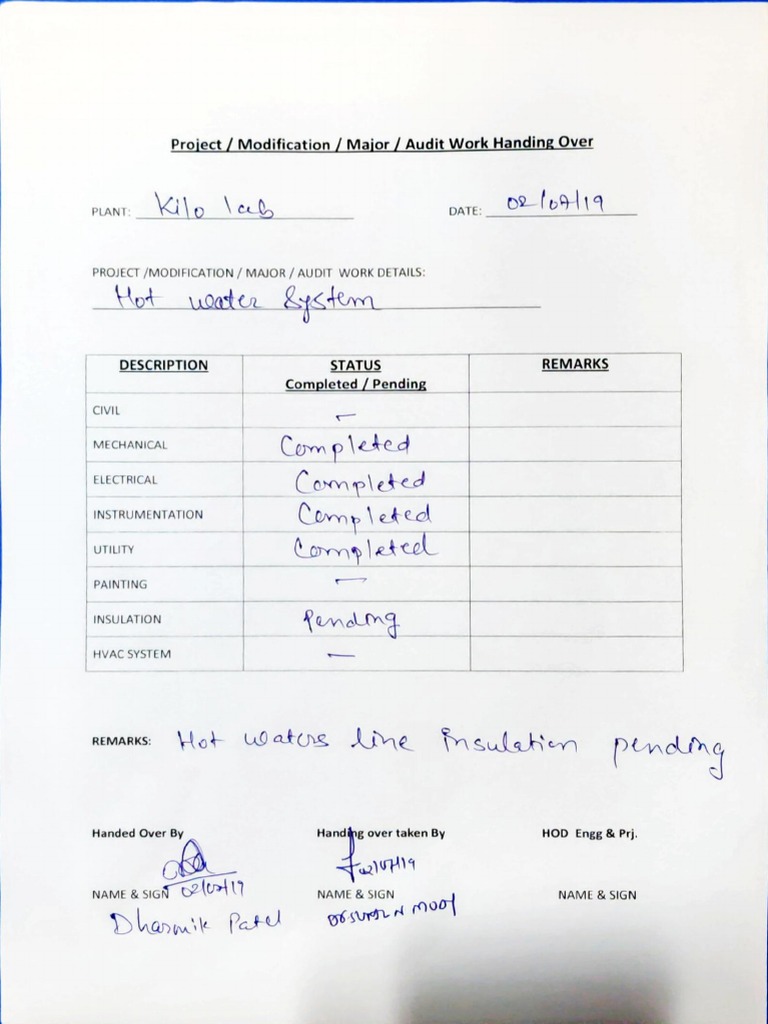 Project / Modification / Major / Audit Work Handing Over
PLANT: Kilo lab DATE: 02/07/19
PROJECT /MODIFICATION / MAJOR / AUDIT WORK DETAILS:
Hot water System
DESCRIPTION STATUS REMARKS
Completed / Pending
CIVIL -
MECHANICAL Completed
ELECTRICAL Completed
INSTRUMENTATION Completed
UTILITY Completed
PAINTING -
INSULATION Pending
HVAC SYSTEM -
REMARKS: Hot waters line insulation pending
Handed Over By Handing over taken By HOD Engg & Prj.
02/07/19
NAME & SIGN 02/07/19 NAME & SIGN NAME & SIGN
Dharmik Patel